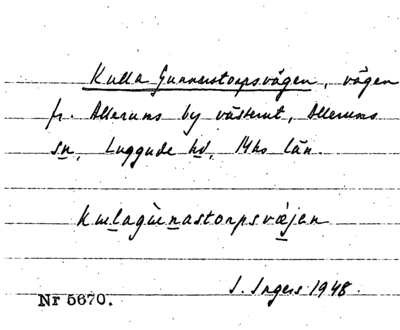 Kulla Gunnarstorpsvägen, vägen
fr. Allerums by västerut, Allerums
sn, Luggude hd, Mhs län.
kulagùnastorpsvæjen
I. Ingers 1948.
Nr 5670.